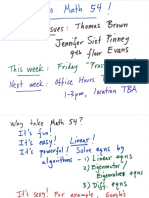 to Math 54!
sues: Thomas Brown
Jennifer Sixt Pinney
9th floor Evans
This week: Friday "Prac
Next week: Office Hours T
1-3pm, location TBA
Why take Math 54?
It's fun!
It's easy! Linear!
It's powerful! Solve eqns by
algorithms
1) Linear eqns
2) Eigenvector/
Eigenvalues eqns
3) Diff. eqns
It's sexy! For example, Google's